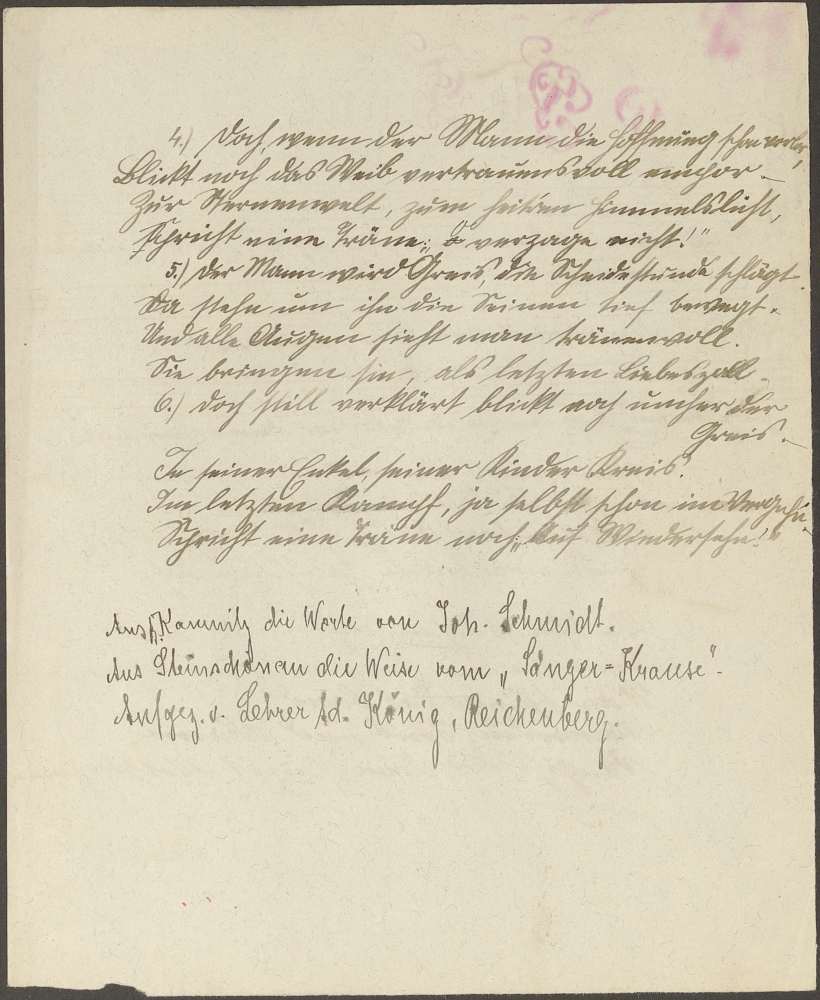 4.) Doch, wenn der Mann die Hoffnung schon verlor,
Blickt noch das Weib vertrauensvoll empor.
Zur Sternenwelt, zum heitren Himmelslicht,
spricht eine Träne: „O verzage nicht!"
5.) Der Mann wird Greis, die Scheidestunde schlägt.
Da stehn um ihn die Seinen tief bewegt.
Und alle Augen sieht man tränenvoll.
Sie bringen hin, als letzten Liebeszoll.
6.) Doch still verklärt blickt noch umher der
Greis.
In seiner Enkel, seiner Kinder Kreis.
Im letzten Kampf, ja selbst schon im Vergehn.
Spricht eine Träne noch: „Auf Wiedersehn!"
Aus B. Kamnitz die Worte von Joh. Schmidt.
Aus Steinschönau die Weise vom „Sänger-Krause".
Aufgez. v. Lehrer Ad. König, Reichenberg.